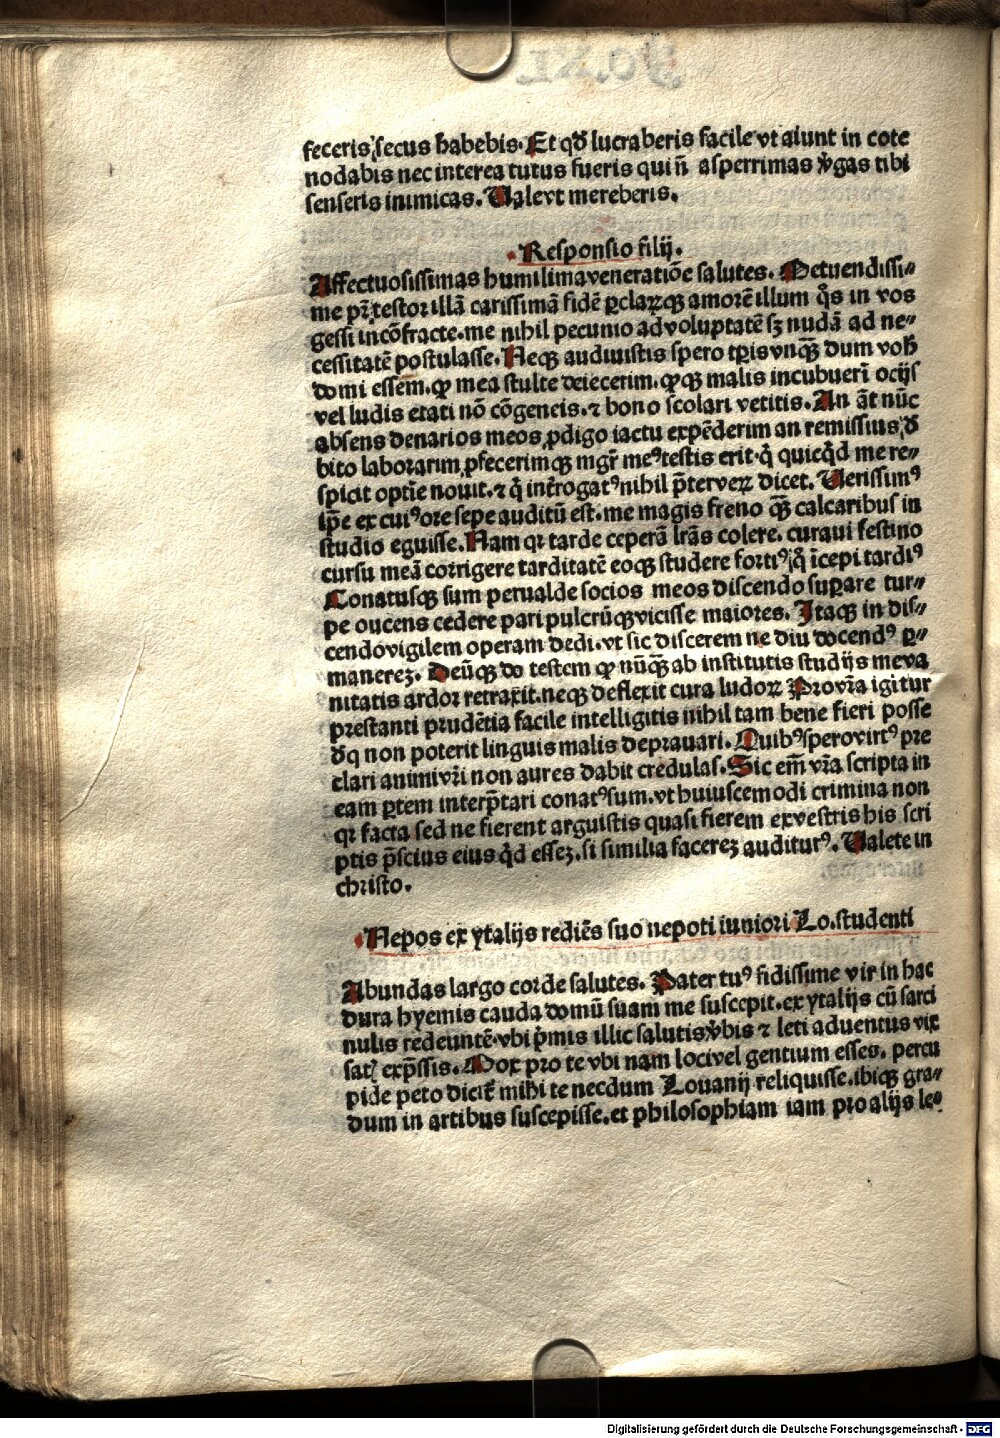 feceris, secus habebis. Et qď lucraberis facile vt aiunt in cote
nodabis nec interea tutus fueris qui n̄ asperrimas v̓gas tibi
senseris inimicas. Vale vt mereberis.
Responsio filij.
Affectuosissimas humilima veneratiōe salutes. Metuendissi⸗
me pr̄ testor illā carissimā fidē p̱clarꝝqꝫ amorē illum qͦs in vos
gessi incōfracte. me nihil pecunio ad voluptatē sꝫ nudā ad ne⸗
cessitatē postulasse. Neqꝫ audiuistis spero tp̄is vnqꝫ̄ dum vob̄
domi essem. ꝙ mea stulte deiecerim. ꝙqꝫ malis incubueri ocijs
vel ludis etati nō cōgeneis. ⁊ bono scolari vetitis. An āt nūc
absens denarios meos ꝓdigo iactu expēderim an remissius, ď
bito laborarim, ꝓfecerimqꝫ mgr̄ meꝰ testis erit. q̓ quicqͥd me re⸗
spicit optīe nouit. ⁊ q̓ intr̄rogatꝰ nihil p̄ter verꝝ dicet. Verissimꝰ
ip̄e ex cuiꝰ ore sepe auditū est. me magis freno qꝫ̄ calcaribus in
studio eguisse. Nam qꝛ tarde ceperā lr̄as colere. curaui festino
cursu meā corrigere tarditatē eoqꝫ studere fortiꝰ, q̓ īcepi tardiꝰ
Conatusqꝫ sum perualde socios meos discendo suꝑare tur⸗
pe oucens cedere pari pulcrūqꝫ vicisse maiores. Itaqꝫ in dis⸗
cendo vigilem operam dedi. vt sic discerem ne diu docendꝰ ꝑ⸗
manereꝫ. Deūqꝫ do testem ꝙ nūqꝫ̄ ab institutis studijs me va
nitatis ardor retraxit. neqꝫ deflexit cura ludoꝝ Pro vr̄a igitur
prestanti prudētia facile intelligitis nihil tam bene fieri posse
ďq non poterit linguis malis deprauari. Quibꝰ spero virtꝰ pre
clari animi vr̄i non aures dabit credulas. Sic em̄ vr̄a scripta in
eam ꝑtem interp̄tari conatꝰ sum. vt huiuscemodi crimina non
qꝛ facta sed ne fierent arguistis quasi fierem ex vestris his scri
ptis p̄scius eius qͥd esseꝫ. si similia facereꝫ auditurꝰ. Valete in
christo.
Nepos ex ytalijs rediēs suo nepoti iuniori Lo. studenti
Abundas largo corde salutes. Pater tuꝰ fidissime vir in hac
dura hyemis cauda domū suam me suscepit. ex ytalijs cū sarci
nulis redeuntē. vbi p̓mis illic salutis v̓bis ⁊ leti aduentus vix
satꝭ exp̄ssis. Mox pro te vbi nam loci vel gentium esses. percu
pide peto dicit̄ mihi te necdum Louanij reliquisse. ibiqꝫ gra⸗
dum in artibus suscepisse. et philosophiam iam pro alijs le⸗
Digitalisierung gefördert durch die Deutsche Forschungsgemeinschaft - DFG